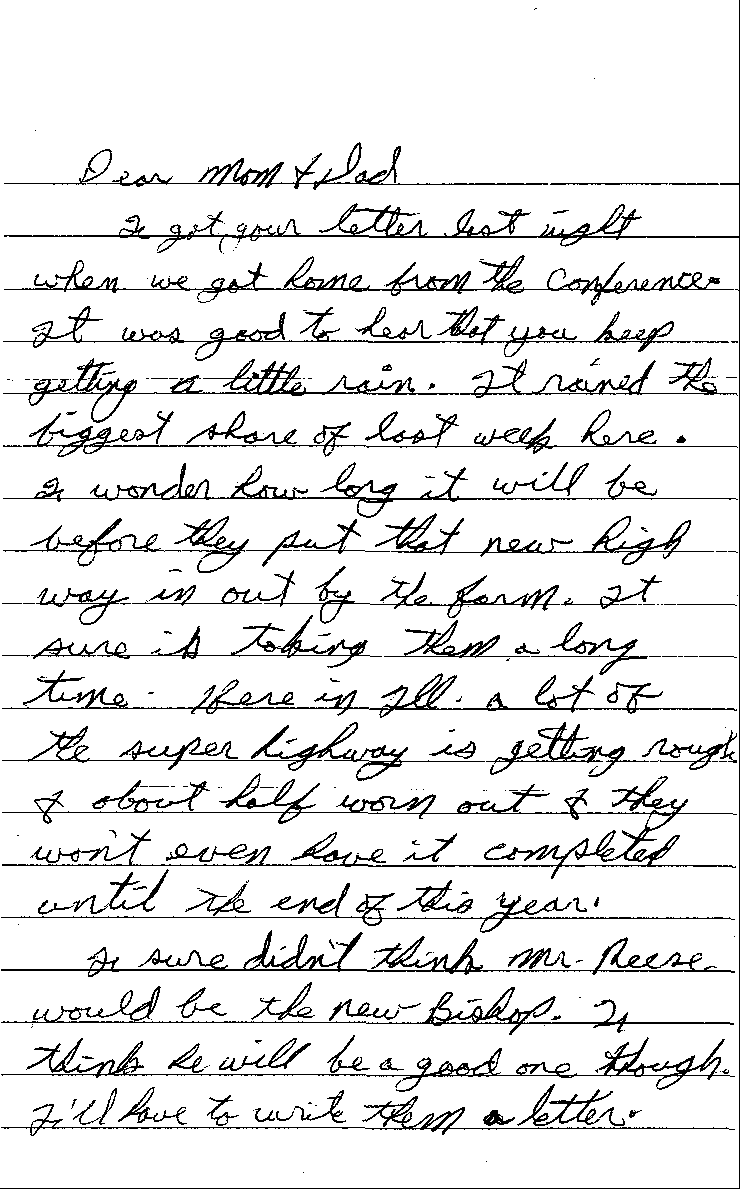 Dear Mom & Dad
I got your letter last night
when we got home from the Conference.
It was good to hear that you keep
getting a little rain. It rained the
biggest share of last week here.
I wonder how long it will be
before they put that new high
way in out by the farm. It
sure is taking them a long
time. Here in Ill. a lot of
the super highway is getting rough
& about half worn out & they
won't even have it completed
until the end of this year.
I sure didn't think Mr. Reese
would be the new Bishop. I
think he will be a good one though.
I'll have to write them a letter.